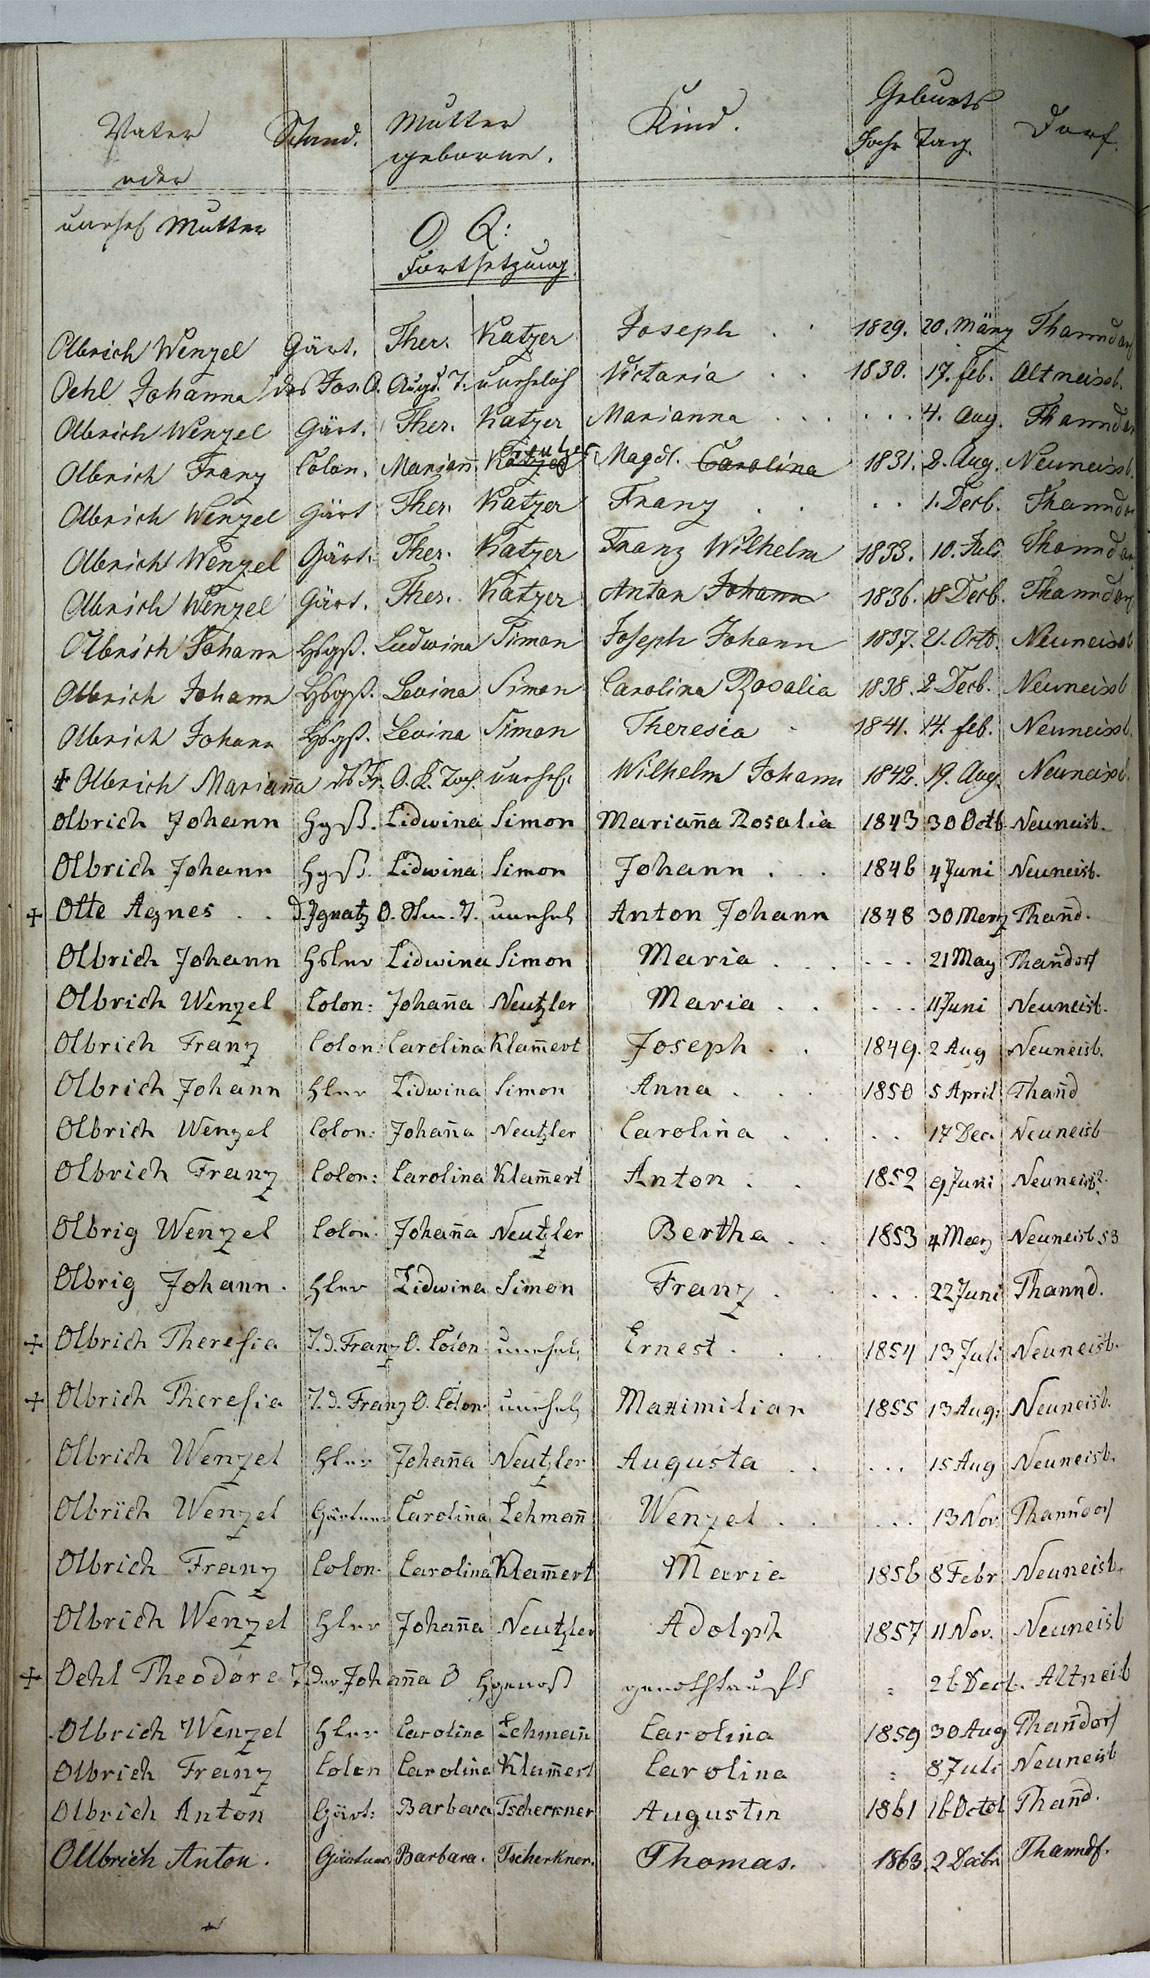 Vater oder unehel Mutter Stand. Mutter geborne. Kind. Geburts Jahr Tag. Dorf.
O Q:
Fortsetzung.
Olbrich Wenzel Gärt. Ther. Katzer Joseph . . 1829. 20. März Thanndorf
Oehl Johanna des Jos. O. Augd. T. unehelich Victoria . . 1830. 17. feb. Altneissb.
Olbrich Wenzel Gärt. Ther. Katzer Marianna . . . . . . 4. Aug. Thanndor
Olbrich Franz Colon. Mariañ. Katzer Magdl. Carolina 1831. 2. Aug. Neuneissb.
Olbrich Wenzel Gärt Ther. Katzer Franz . . . . 1. Decb. Thanndor
Olbrich Wenzel Gärt. Ther. Katzer Franz Wilhelm 1833. 10. Juli Thanndor
Olbrich Wenzel Gärt. Ther. Katzer Anton Johann 1836. 18 Decb. Thanndorf
Olbrich Johann Hsgß. Ludwina Simon Joseph Johann 1837. 21. Octb. Neuneissb
Olbrich Johann Hsgß. Levina Simon Carolina Rosalia 1838. 2 Decb. Neuneissb
Olbrich Johann Hsgß. Levina Simon Theresia . 1841. 14. feb. Neuneissb.
+ Olbrich Mariaña ds Fr. O. unehel. Wilhelm Johann 1842. 19. Aug. Neuneissb.
Olbrich Johann Hgß. Lidwina Simon Mariaña Rosalia 1843 30 Octb Neuneisb.
Olbrich Johann Hgß. Lidwina Simon Johann . . . 1846 4 Juni Neuneisb.
+ Otte Agnes . . d. Ignatz O. T. unehel Anton Johann 1848 30 Merz Thañd.
Olbrich Johann Hsler Lidwina Simon Maria . . . . . . 21 May Thañdorf
Olbrich Wenzel Colon: Johaña Neutzler Maria . . . . . 11 Juni Neuneisb.
Olbrich Franz Colon: Carolina Klam̄ert Joseph . . 1849. 2 Aug Neuneisb.
Olbrich Johann Hler Lidwina Simon Anna . . . 1850 5 April Thañd
Olbrich Wenzel Colon: Johaña Neutzler Carolina . . . . 17 Dec. Neuneisb
Olbrich Franz Colon: Carolina Klam̄ert Anton . . 1852 9 Juni Neuneisb.
Olbrig Wenzel Colon. Johaña Neutzler Bertha . . 1853 4 Meerz Neuneisb 53
Olbrig Johann . Hler Lidwina Simon Franz . . . . . 22 Juni Thannd.
+ Olbrich Theresia T. d. Franz O. Colon unehel Ernest . . . 1854 13 Juli Neuneisb.
+ Olbrich Theresia T. d. Franz O. Colon unehel Maximilian 1855 13 Aug. Neuneisb.
Olbrich Wenzel Hler Johaña Neutzler Augusta . . . . . 15 Aug Neuneisb.
Olbrich Wenzel Gärtner Carolina Lehmañ Wenzel . . . . . 13 Nov. Thanndorf
Olbrich Franz Colon. Carolina Klam̄ert Maria 1856 8 Febr Neuneisb.
Olbrich Wenzel Hler Johaña Neutzler Adolph 1857 11 Nov. Neuneisb
+ Oehl Theodore T der Johaña O Hgenoß genothtauft : 26 Decb. Altneisb
Olbrich Wenzel Hler Carolina Lehmañ Carolina 1859 30 Aug Thañdorf
Olbrich Franz Colon Carolina Klam̄ert Carolina : 8 Juli Neuneisb
Olbrich Anton Gärt: Barbara Tscherkner Augustin 1861 16 Octob Thañd.
Ollbrich Anton . Gärtner Barbara . Tscherkner. Thomas. 1863. 2 Decbr Thanndf.